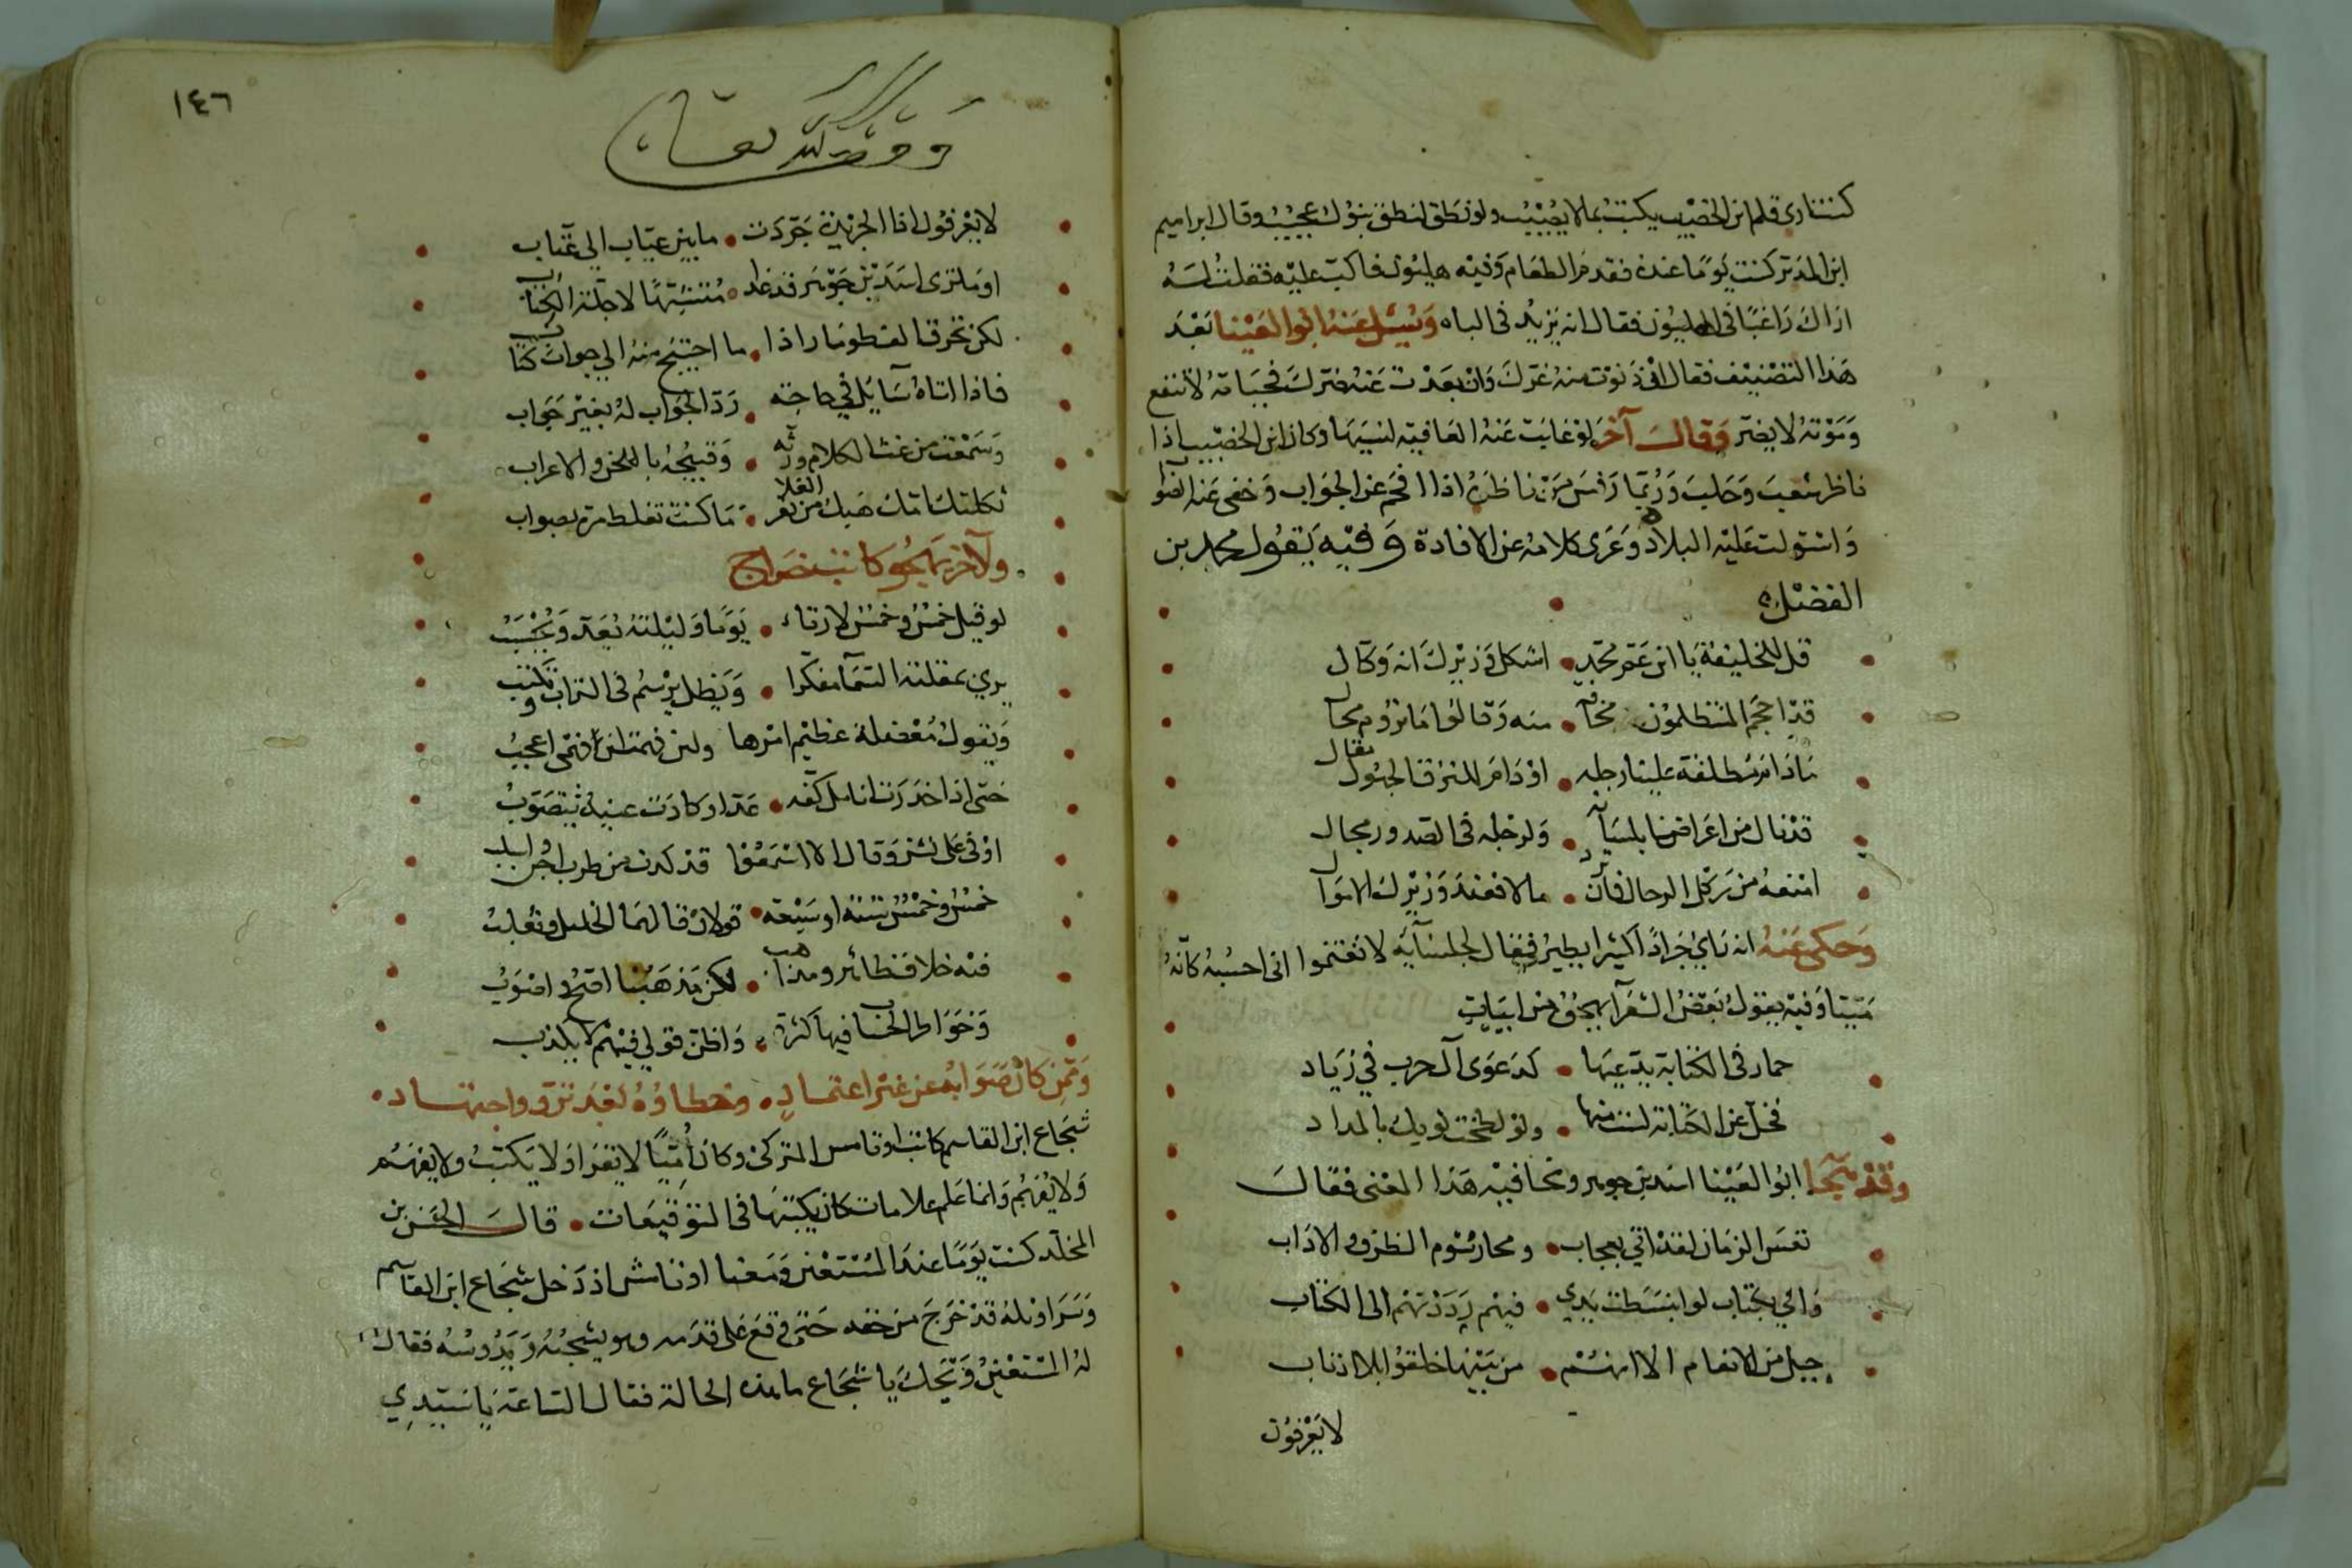 كنت ارى قلم ابن الخصيب يكتب بما لا يصيب ولو نطق لنطق بنوك عجيب وقال ابراهيم
ابن المدبر كنت يوما عنده فقدم الطعام وفيه هليون فاكب عليه فقلت له
اراك راغبا في الهليون فقال انه يزيد في الباه وسئل عنه ابوا العينا بعد
هذا التصنيف فقال ان دنوت منه غرك وان بعدت عنه ضرك فحياته لا تنفع
وموته لا يضر وقال آخر لو غابت عنه العافية لنسيها وكان ابن الخصيب اذا
ناظر شعب وحلب وربما رفس من ناظره اذا افحم عن الجواب وخفى عنه الصواب
واستولت عليه البلادة وعرى كلامه عن الافادة وفيه يقول محمد بن
الفضل
قل للخليفة يا ابن عم محمد • اشكل وزيرك انه ركال
قد احجم المتظلمون مخافة • منه وقالوا ما نروم محال
ما دام مطلقة علينا رجله • او دام للنزق الجهول مقال
قد نال من اعراضنا بلسانه • ولرجله في الصدور مجال
امنعه من ركل الرجال فان ترد • مالا فعند وزيرك الاموال
وحكى عنه انه راى جرادا كثيرا يطير فقال لجلسائه لا تغتموا اني احسبه كانه
ميتا وفيه يقول بعض الشعرآ يهجوه من ابيات
حمار في الكتابة يدعيها • كدعوى آل حرب في زياد
فخل عن الكتابة لست منها • ولو لطخت ثوبك بالمداد
وقد هجا ابوا العينا اسد بن جوهر ونحا فيه هذا المعنى فقال
تعس الزمان لقد اتى بعجاب • ومحا رسوم الظرف والاداب
واتي بكتاب لو انبسطت يدي • فيهم رددتهم الى الكتاب
جيل من الانعام الا انهم • من بينها خلقوا بلا اذناب
لا يعرفون
١٤٦
وقف لله تعالى
لا يعرفون اذا الجريدة جردت • ما بين عياب الى عتاب
او ما ترى اسد بن جوهر قد غدا • متشبها لاجلة الكتاب
لكن يخرق الف طومار اذا • ما احتيج منه الى جواب كتاب
فاذا اتاه سائل في حاجة • رد الجواب له بغير جواب
وسمعت من غث الكلام ورثه • وقبيحه باللحن والاعراب
ثكلتك امك هبك من بقر الفلا • ما كنت تغلط مرة بصواب
ولآخر يهجو كاتب خراج
لو قيل خمس وخمس لارتاء • يوما وليلته يعد ويحسب
يرمي بمقلته السما مفكرا • ويظل يرسم في التراب ويكتب
ويقول معضلة عظيم امرها ولئن فهمت لان فهمى اعجب
حتى اذا خدرت انامل كفه • عدا وكادت عينه تتصوب
اوفى على نشز وقال الا اسمعوا قد كدت من طرب اجن واسلب
خمس وخمس ستة او سبعة • قولان قالهما الخليل وثعلب
فيه خلاف ظاهر ومذاهب • لكن مذهبنا اصح واصوب
وخواطر الحساب فيها كثرة • واظن قولي فيهم لا يكذب
وممن كان صوابه عن غير اعتماد • وخطاؤه بعد ترو واجتهاد •
شجاع ابن القاسم كاتب اوتامس التركى وكان اميا لا يقرا ولا يكتب ولا يفهم
ولا يفهم وانما علم علامات كان يكتبها في التوقيعات • قال الحسن بن
المخلد كنت يوما عند المستعين ومعنا اوتامش اذ دخل شجاع ابن القاسم
وسراويله قد خرج من خفه حتى وقع على قدمه وهو يسحبه ويدوسه فقال
له المستعين ويحك يا شجاع ما هذه الحالة فقال الساعة يا سيدي